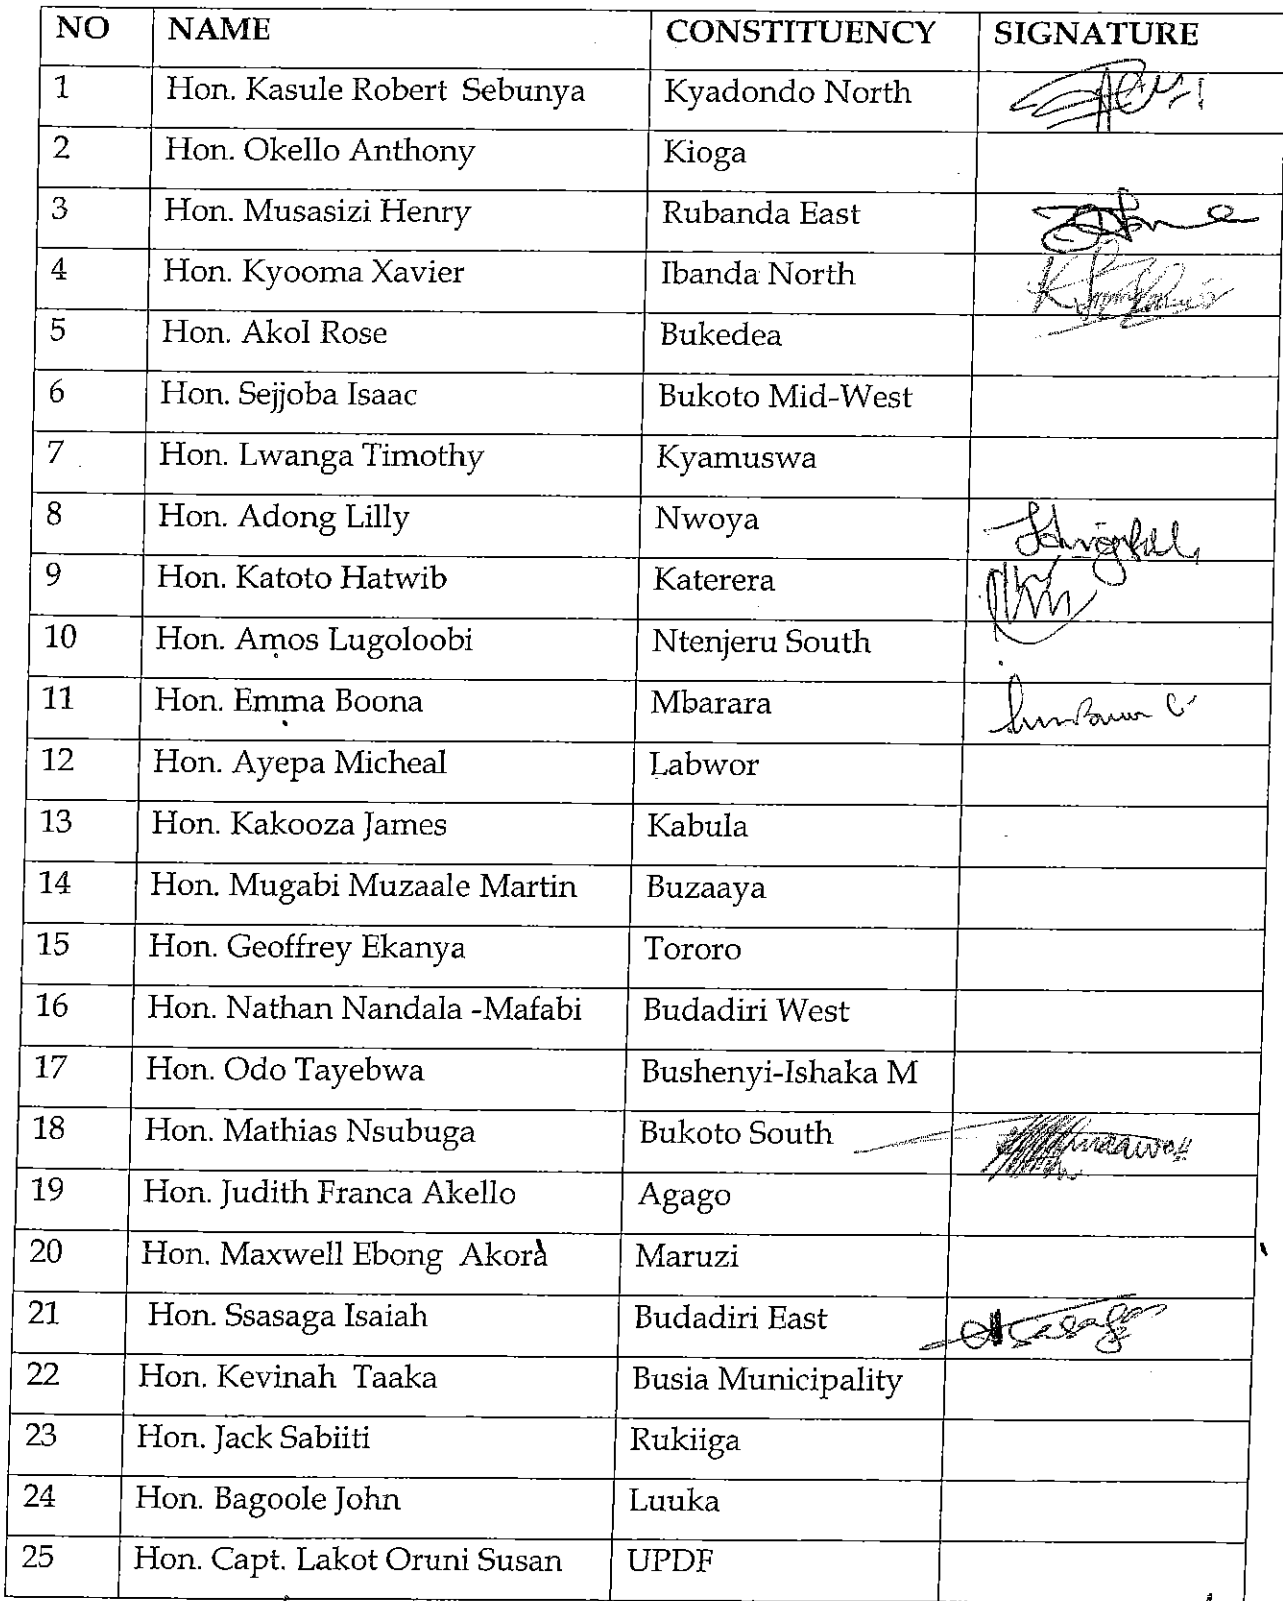 NO NAME CONSTITUENCY SIGNATURE
1 Hon. Kasule Robert Sebunya Kyadondo North
2 Hon. Okello Anthony Kioga
3 Hon. Musasizi Henry Rubanda East
4 Hon. Kyooma Xavier Ibanda North
5 Hon. Akol Rose Bukedea
6 Hon. Sejjoba Isaac Bukoto Mid-West
7 Hon. Lwanga Timothy Kyamuswa
8 Hon. Adong Lilly Nwoya
9 Hon. Katoto Hatwib Katerera
10 Hon. Amos Lugoloobi Ntenjeru South
11 Hon. Emma Boona Mbarara
12 Hon. Ayepa Micheal Labwor
13 Hon. Kakooza James Kabula
14 Hon. Mugabi Muzaale Martin Buzaaya
15 Hon. Geoffrey Ekanya Tororo
16 Hon. Nathan Nandala -Mafabi Budadiri West
17 Hon. Odo Tayebwa Bushenyi-Ishaka M
18 Hon. Mathias Nsubuga Bukoto South
19 Hon. Judith Franca Akello Agago
20 Hon. Maxwell Ebong Akora Maruzi
21 Hon. Ssasaga Isaiah Budadiri East
22 Hon. Kevinah Taaka Busia Municipality
23 Hon. Jack Sabiiti Rukiiga
24 Hon. Bagoole John Luuka
25 Hon. Capt. Lakot Oruni Susan UPDF